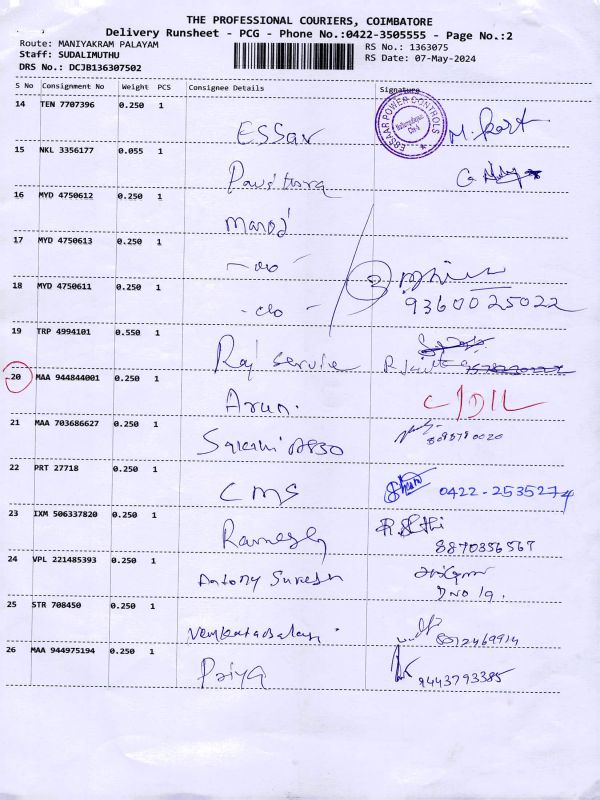 THE PROFESSIONAL COURIERS, COIMBATORE
Delivery Runsheet - PCG - Phone No.:0422-3505555 - Page No.:2
Route: MANIYAKRAM PALAYAM
Staff: SUDALIMUTHU
DRS No.: DCJB136307502
RS No.: 1363075
RS Date: 07-May-2024
S No Consignment No Weight PCS Consignee Details Signature
14 TEN 7707396 0.250 1 ESSAR
ESSAAR POWER CONTROLS
15 NKL 3356177 0.055 1 Pavithra G
16 MYD 4750612 0.250 1 Manoj
17 MYD 4750613 0.250 1 - do -
18 MYD 4750611 0.250 1 - do - 3 9360025022
19 TRP 4994101 0.550 1 Raj service
20 MAA 944844001 0.250 1 Arun.
21 MAA 703686627 0.250 1
22 PRT 27718 0.250 1 CMS 0422-2535274
23 IXM 506337820 0.250 1 Ramesh 8870356567
24 VPL 221485393 0.250 1 Antony Suresh
D No 19.
25 STR 708450 0.250 1 Venkatabalaji
26 MAA 944975194 0.250 1 Priya 9443793385